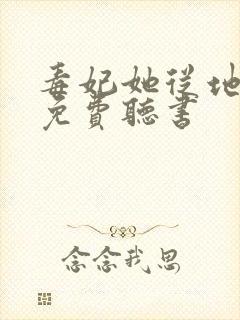 毒妃她从地
免費聽書
念念我思